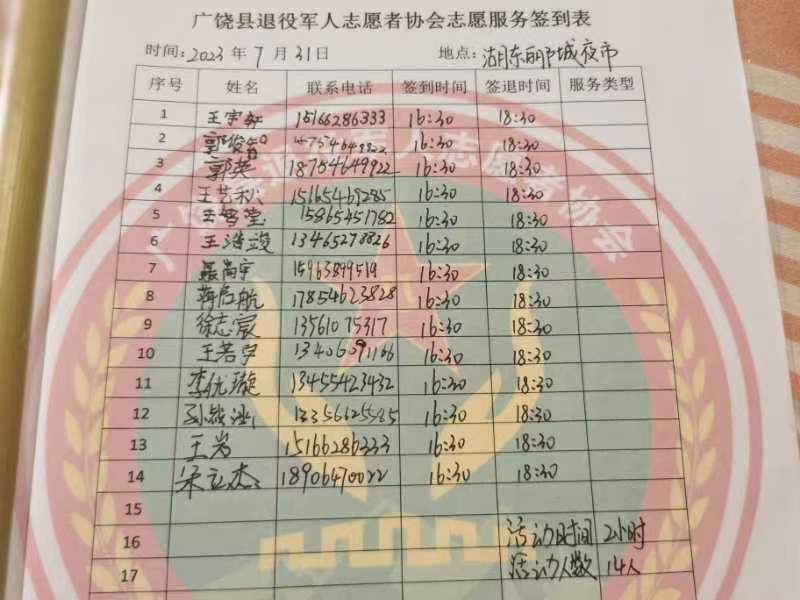 广饶县退役军人志愿者协会志愿服务签到表
时间：2023 年 7 月 31日 地点：湖东丽都城夜市
序号 姓名 联系电话 签到时间 签退时间 服务类型
1 王宇轩 15166286333 16:30 18:30
2 郭俊智 18754649922 16:30 18:30
3 郭英 18754649922 16:30 18:30
4 王艺秋 15165469285 16:30 18:30
5 15865451782 16:30 18:30
6 王浩竣 13465273826 16:30 18:30
7 聂尚宇 15963899519 16:30 18:30
8 蒋启航 17854623828 16:30 18:30
9 徐志宸 13561075317 16:30 18:30
10 王若宇 13406091166 16:30 18:30
11 李优璇 13455423432 16:30 18:30
12 16:30 18:30
13 王岩 15166286333 16:30 18:30
14 宋立杰 18906470022 16:30 18:30
15
16 活动时间 2小时
17 活动人数 14人